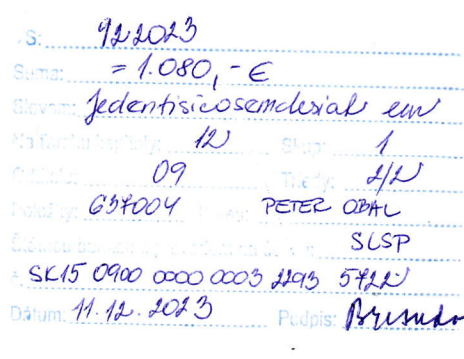 S: 922023
Suma: = 1.080,- €
Slovom: Jedentisícosemdesiat eur
12 Skup: 1
09 Triedy: 2/2
Položky: 637004 PETER OBAL
SLSP
SK15 0900 0000 0003 2293 5722
Dátum: 11.12.2023 Podpis: